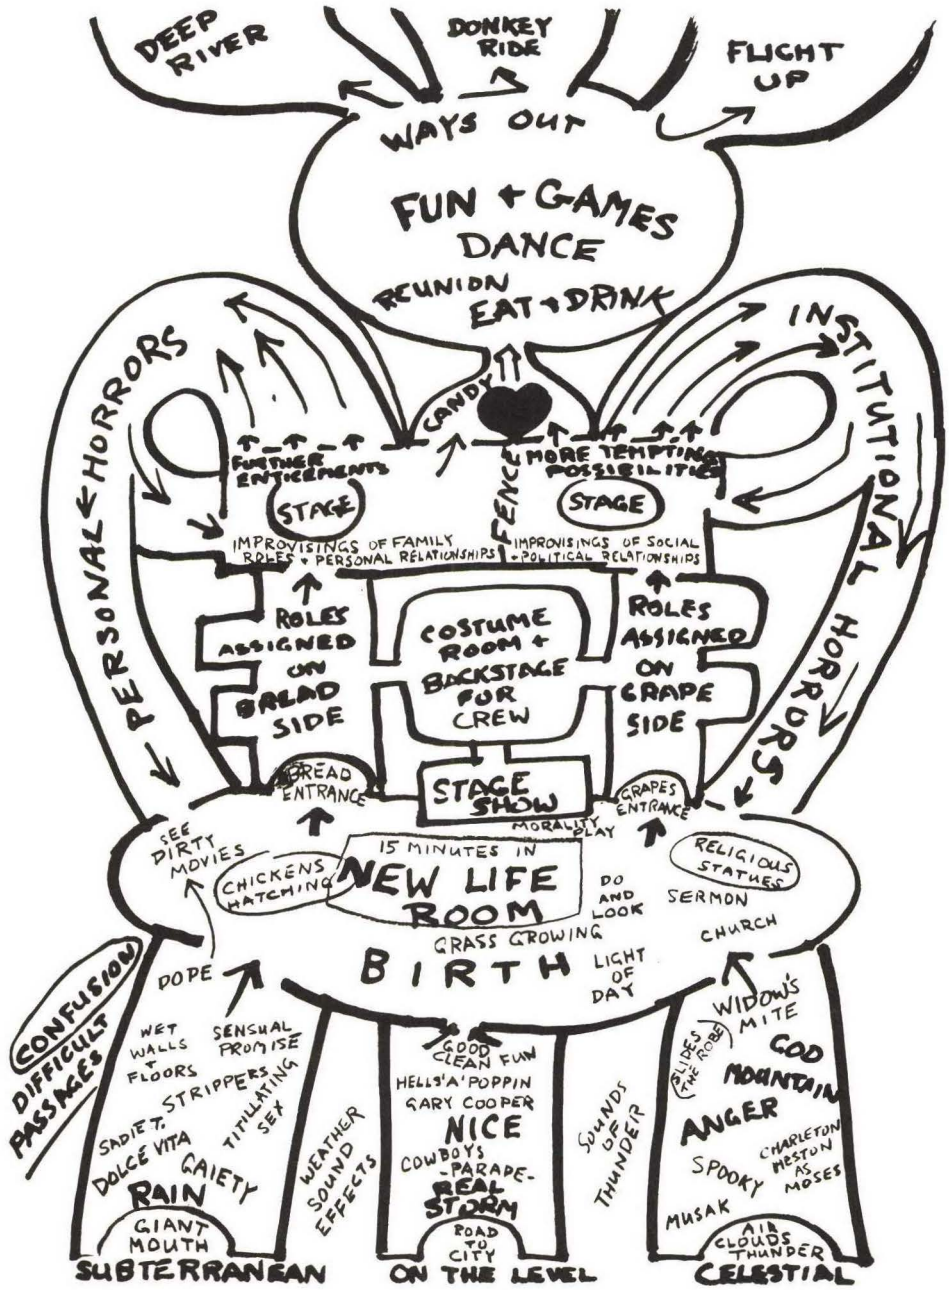 DEEP
RIVER
DONKEY
RIDE
FLIGHT
UP
WAYS OUT
FUN + GAMES
DANCE
REUNION
EAT + DRINK
PERSONAL HORRORS
INSTITUTIONAL HORRORS
CANDY
FENCE
FURTHER
ENTICEMENTS
MORE TEMPTING
POSSIBILITIES
STAGE
STAGE
IMPROVISINGS OF FAMILY
ROLES + PERSONAL RELATIONSHIPS
IMPROVISINGS OF SOCIAL
+ POLITICAL RELATIONSHIPS
ROLES
ASSIGNED
ON
BREAD
SIDE
COSTUME
ROOM +
BACKSTAGE
FOR
CREW
ROLES
ASSIGNED
ON
GRAPE
SIDE
BREAD
ENTRANCE
STAGE
SHOW
GRAPES
ENTRANCE
MORALITY
PLAY
SEE
DIRTY
MOVIES
CHICKENS
HATCHING
15 MINUTES IN
NEW LIFE
ROOM
DO
AND
LOOK
RELIGIOUS
STATUES
SERMON
CHURCH
GRASS GROWING
BIRTH
LIGHT
OF
DAY
CONFUSION
DIFFICULT
PASSAGES
DOPE
WET
WALLS
+
FLOORS
SENSUAL
PROMISE
STRIPPERS
TITILLATING
SEX
SADIE T.
DOLCE VITA
GAIETY
RAIN
GIANT
MOUTH
SUBTERRANEAN
WEATHER
SOUND
EFFECTS
GOOD
CLEAN FUN
HELLS'A'POPPIN
GARY COOPER
NICE
COWBOYS
-PARADE-
REAL
STORM
ROAD
TO
CITY
ON THE LEVEL
SOUNDS
OF
THUNDER
WIDOW'S
MITE
(SLIDES
THE ROBE)
GOD
MOUNTAIN
ANGER
CHARLETON
HESTON
AS
MOSES
SPOOKY
MUSAK
AIR
CLOUDS
THUNDER
CELESTIAL